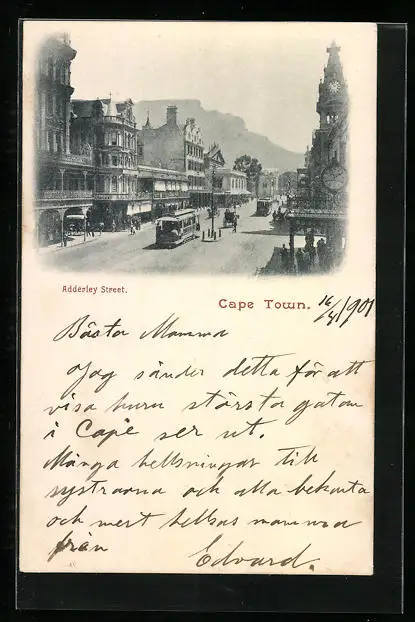 Adderley Street.
Cape Town. 16/4 1901
Bästa Mamma
Jag sänder detta för att
visa huru största gatan
i Cape ser ut.
Många hellsningar till
systrarna och alla bekanta
och mert hellsas mamma
från Edvard.